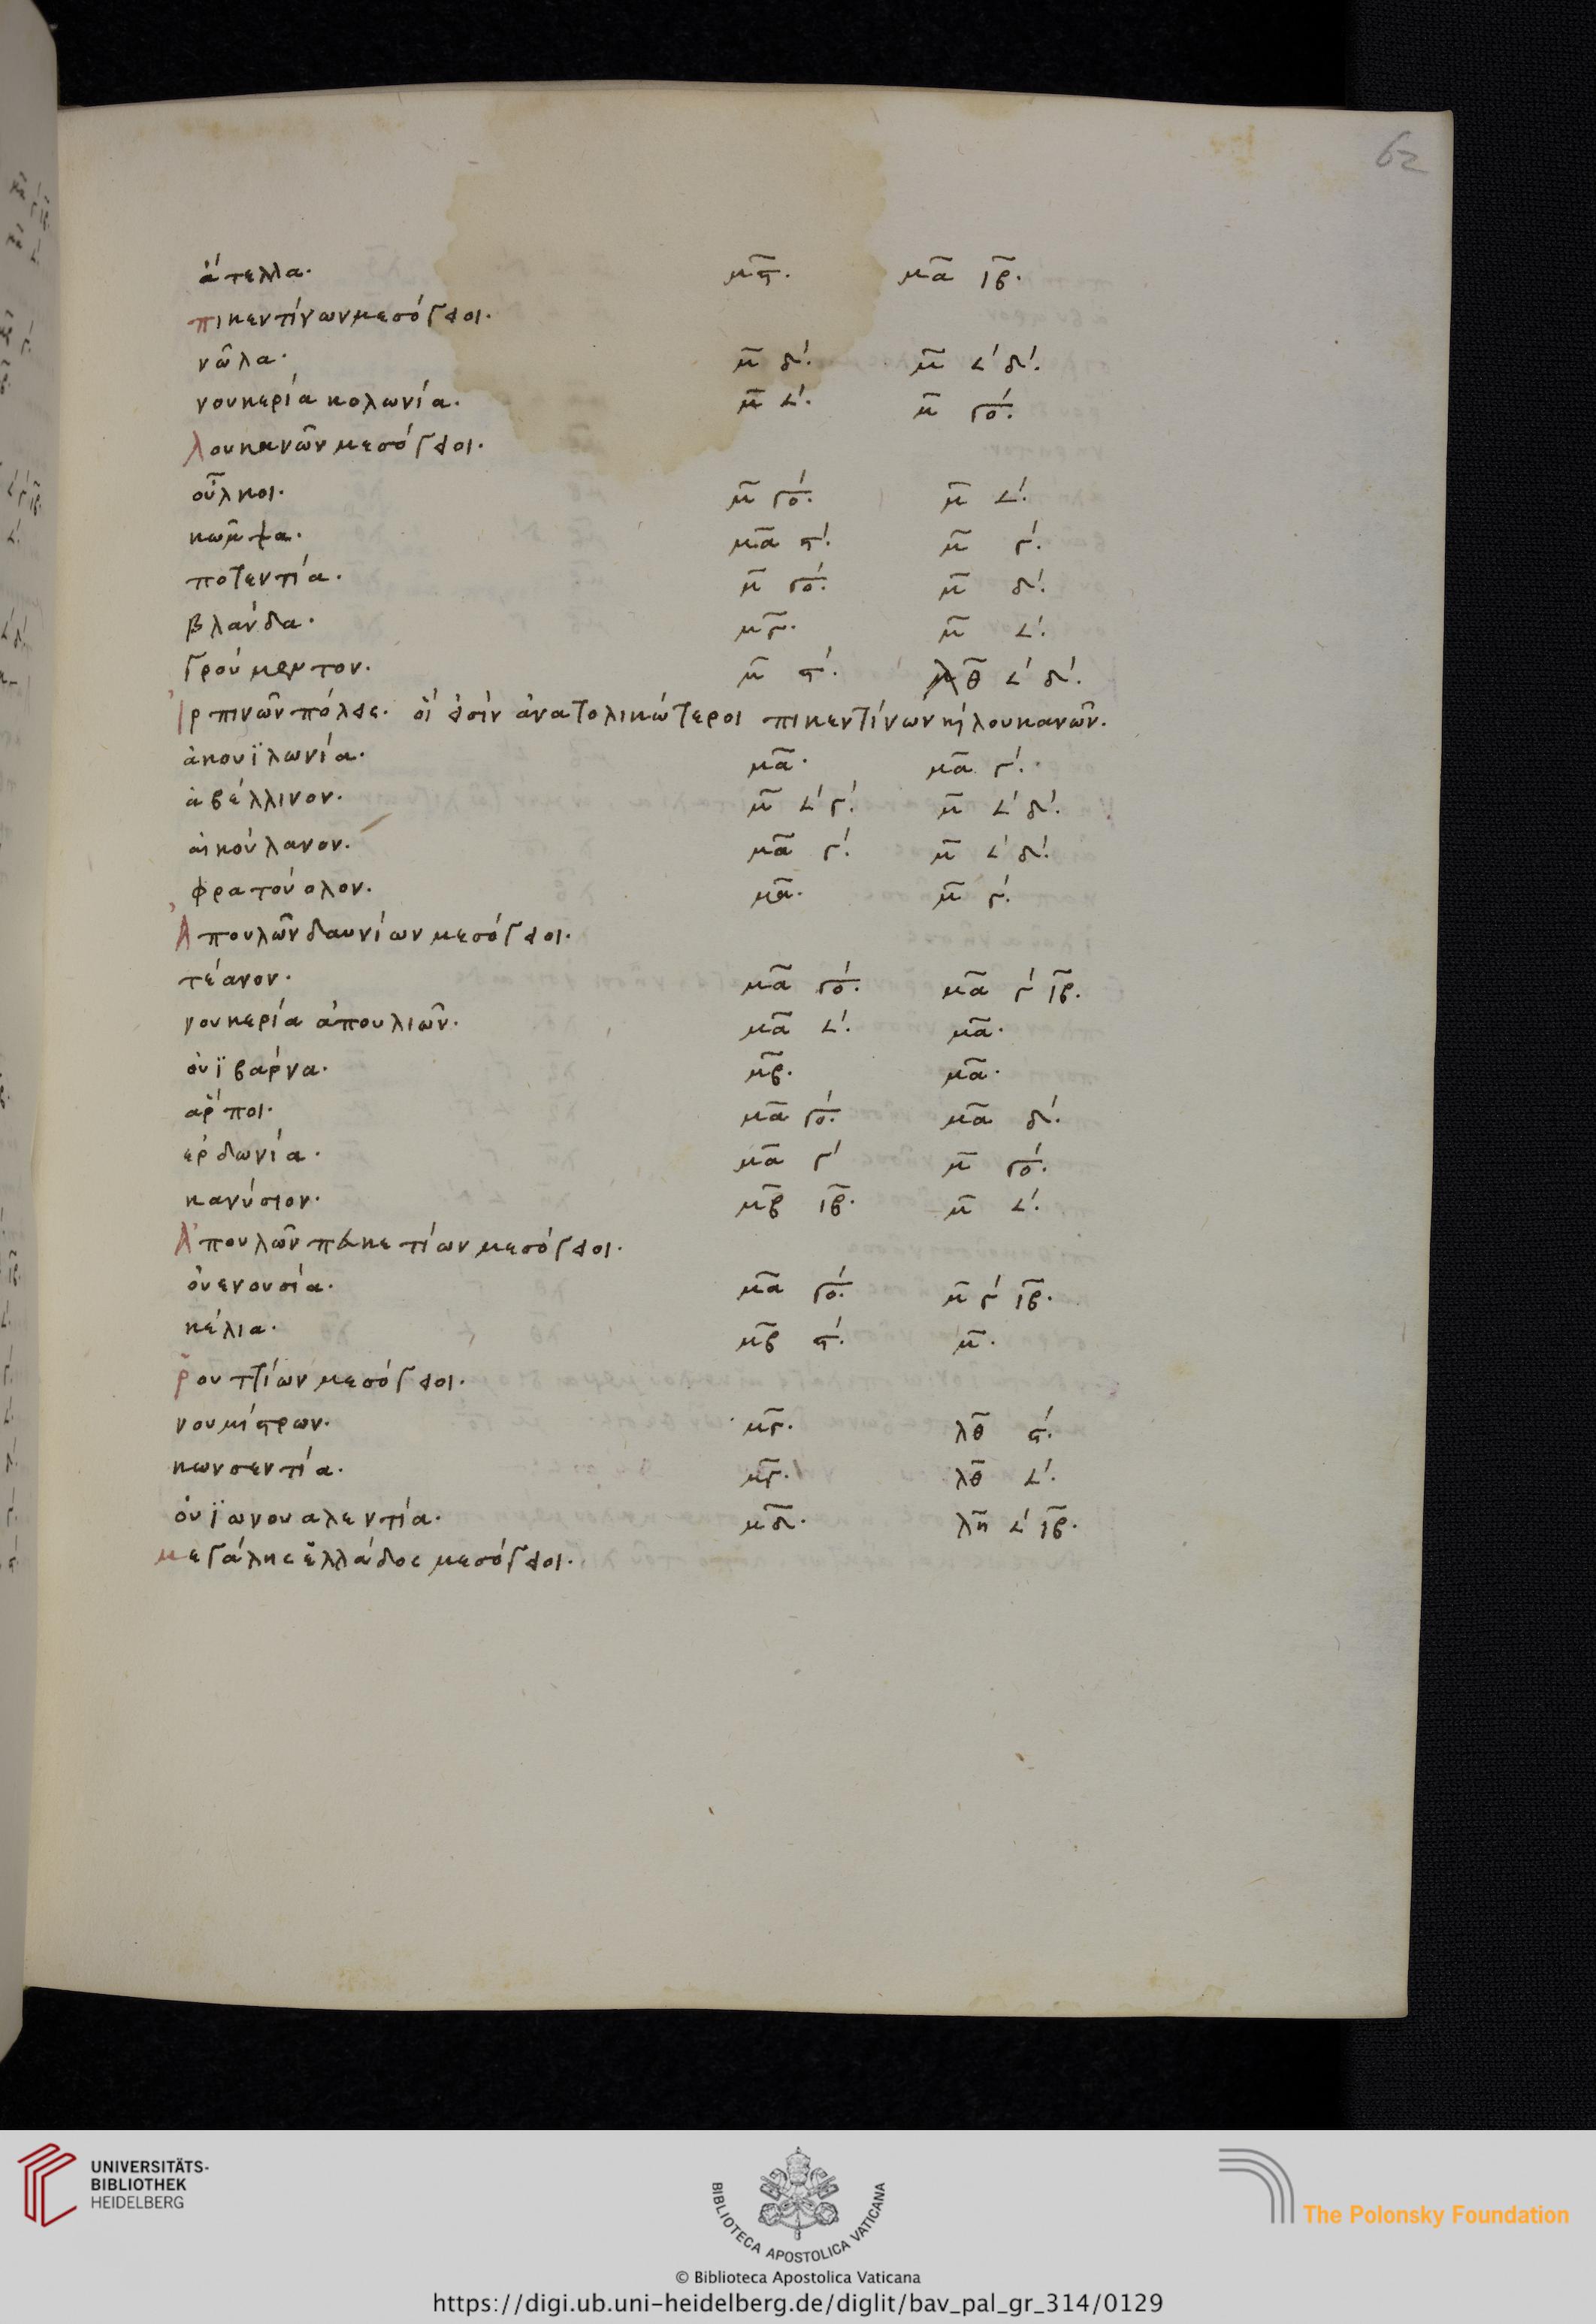 62
ἄτελλα. μ̅ς̅. μ̅α̅ ι̅β̅.
πικεντίνων μεσόγειοι.
νῶλα. μ̅ δ'. μ̅ ∠' δ'.
νουκερία κολωνία. μ̅ ∠'. μ̅ γό'.
λουκανῶν μεσόγειοι.
οὖλκοι. μ̅ γό'. μ̅ ∠'.
κωμψα. μ̅α̅ ς'. μ̅ γ'.
ποτεντία. μ̅ γό'. μ̅ δ'.
βλάνδα. μ̅γ̅. μ̅ ∠'.
γρούμεντον. μ̅ ς'. λ̅θ̅ ∠' δ'.
Ἰρπινῶν πόλεις. οἵ εἰσιν ἀνατολικώτεροι πικεντίνων κ̀ λουκανῶν.
ἀκουϊλωνία. μ̅α̅. μ̅α̅ γ'.
ἀβέλλινον. μ̅ ∠' γ'. μ̅ ∠' δ'.
αἰκούλανον. μ̅α̅ γ'. μ̅ ∠' δ'.
φρατούολον. μ̅α̅. μ̅ γ'.
Ἀπουλῶν δαυνίων μεσόγειοι.
τέανον. μ̅α̅ γό'. μ̅α̅ γ' ι̅β̅.
νουκερία ἀπουλιῶν. μ̅α̅ ∠'. μ̅α̅.
ὀυϊβάρνα. μ̅β̅. μ̅α̅.
ἄρποι. μ̅α̅ γό'. μ̅α̅ δ'.
ερδωνία. μ̅α̅ γ' μ̅ γό'.
κανύσιον. μ̅β̅ ι̅β̅. μ̅ ∠'.
Ἀπουλῶν πευκετίων μεσόγειοι.
ὀυενουσία. μ̅α̅ γό'. μ̅ γ' ι̅β̅.
κέλια. μ̅β̅ ς'. μ̅.
ρουττίων μεσόγειοι.
νουμίστρων. μ̅γ̅. λ̅θ̅ ς'.
κωνσεντία. μ̅γ̅. λ̅θ̅ ∠'.
ὀυϊωνουαλεντία. μ̅δ̅. λ̅η̅ ∠' ι̅β̅.
μεγάλης ἑλλάδος μεσόγειοι.
UNIVERSITÄTS-
BIBLIOTHEK
HEIDELBERG
BIBLIOTECA APOSTOLICA VATICANA
The Polonsky Foundation
© Biblioteca Apostolica Vaticana
https://digi.ub.uni-heidelberg.de/diglit/bav_pal_gr_314/0129